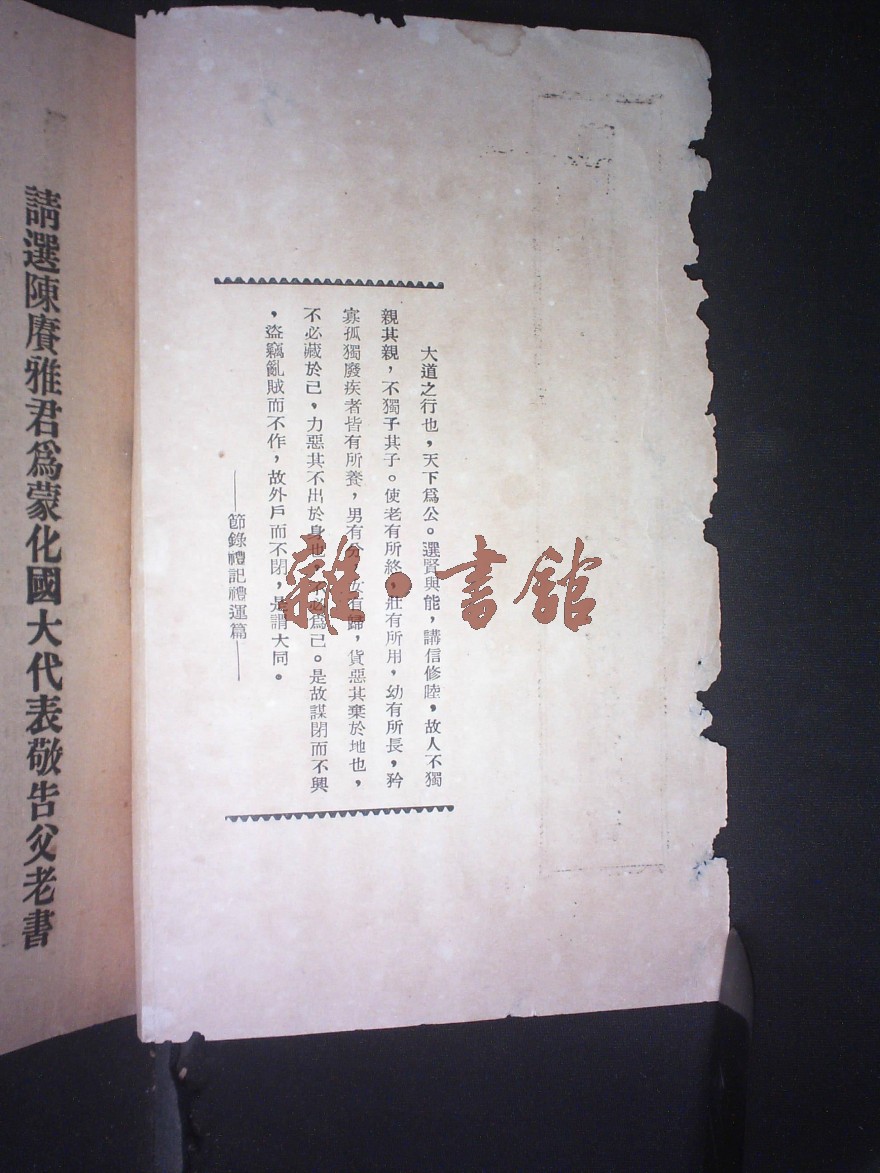 大道之行也，天下爲公。選賢與能，講信修睦，故人不獨
親其親，不獨子其子。使老有所終，壯有所用，幼有所長，矜
寡孤獨廢疾者皆有所養，男有分，女有歸，貨惡其棄於地也，
不必藏於己，力惡其不出於身也，不必爲己。是故謀閉而不興
，盜竊亂賊而不作，故外戶而不閉，是謂大同。
——節錄禮記禮運篇——
請選陳賡雅君爲蒙化國大代表敬告父老書
雜·書館